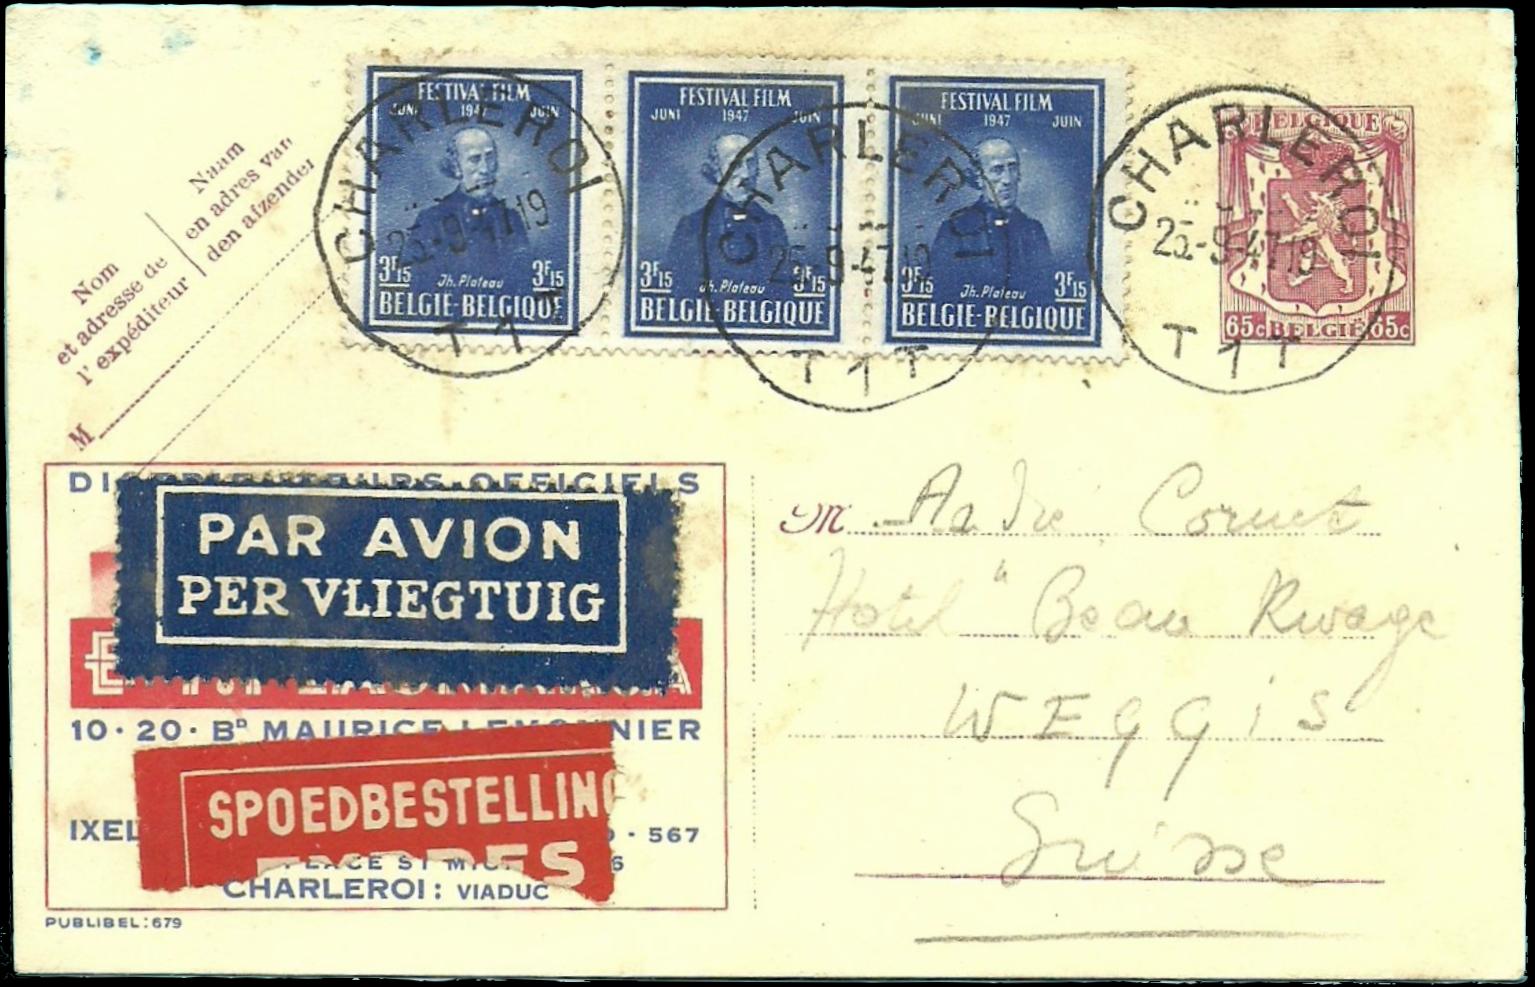 FESTIVAL FILM
JUNI 1947 JUIN
3F15 Jh. Plateau 3F15
BELGIE-BELGIQUE
FESTIVAL FILM
JUNI 1947 JUIN
3F15 Jh. Plateau 3F15
BELGIE-BELGIQUE
FESTIVAL FILM
JUNI 1947 JUIN
3F15 Jh. Plateau 3F15
BELGIE-BELGIQUE
BELGIQUE
65c BELGIË 65c
CHARLEROI
25-9-47 19
T 1 T
CHARLEROI
25-9-47 19
T 1 T
CHARLEROI
25-9-47 19
T 1 T
Nom
et adresse de
l'expéditeur
Naam
en adres van
den afzender
M
OFFICIELS
PAR AVION
PER VLIEGTUIG
10 · 20 · BD MAURICE LEMONNIER
SPOEDBESTELLING
IXEL 567
PLACE ST 6
CHARLEROI: VIADUC
PUBLIBEL: 679
M André Cornet
Hotel "Beau Rivage
WEGGIS
Suisse